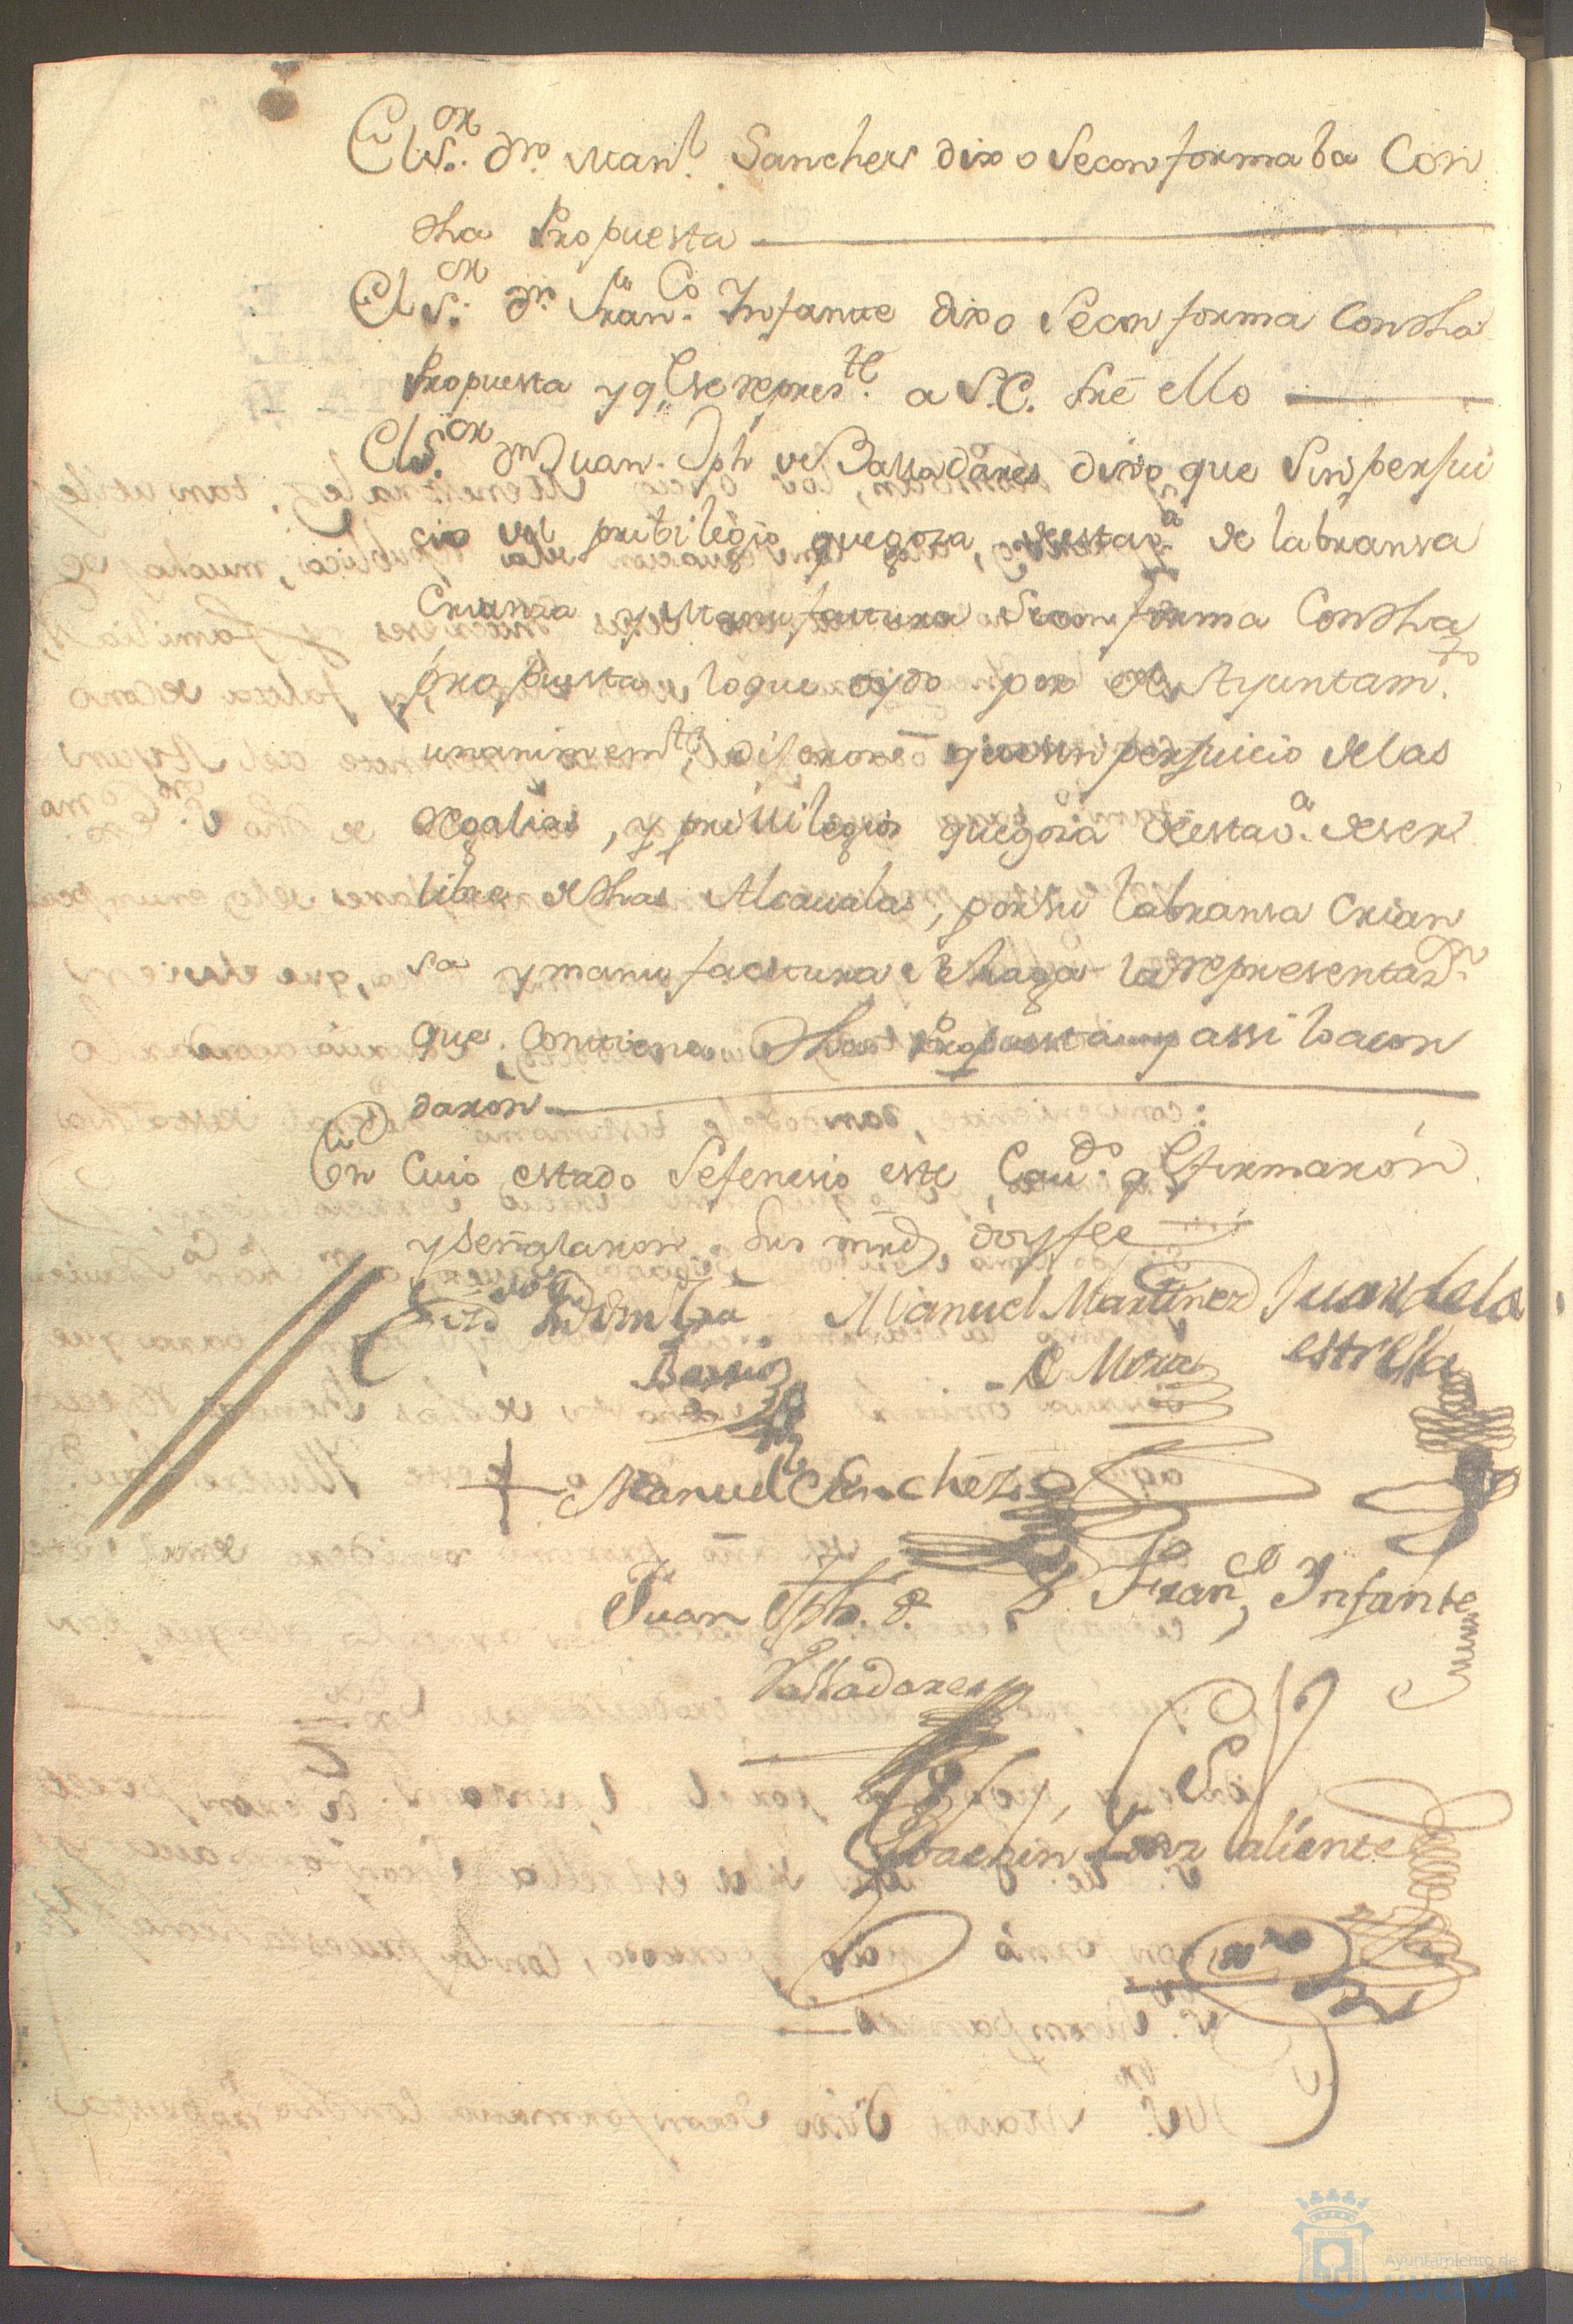 El S.or Dn. Man.l Sanches dixo se conformaba Con
dha Propuesta
El S.or Dn. Fran.co Infante dixo se conforma Con dha
Propuesta y q.e se repres.te a S.E. sre ello
El S.or Dn Juan Jph de Balladares dixo que sin perjui
cio del pribilegio que goza, de esta v.a de labransa
Crianza y Manufactura se conforma Con dha
propuesta, lo que oydo por el Ayuntam.to
unanimem.te dixeron que sin perjuicio de las
regalias, y privilegios que goza de esta v.a de ser
libre de dhas Alcaualas, por su labransa Crian
sa y manufactura se haga la representaz.n
que Contiene dha Propuesta y assi lo acor
daron
En Cuio estado se fenesio este Cau.do q.e firmaron
y señalaron sus mrds, doy fee
Barrio
Manuel Martinez
de Mora
Juan de la
estrella
Manuel Sanchez
Juan Jph. d.
Valladares
Fran.co Infante
Joachin
aliente
Ayuntamiento de
HUELVA